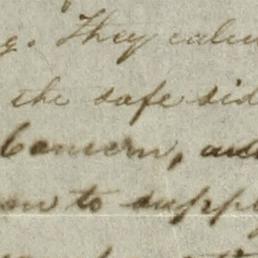 g. They calcu
the safe sid
Concern, and
to supply